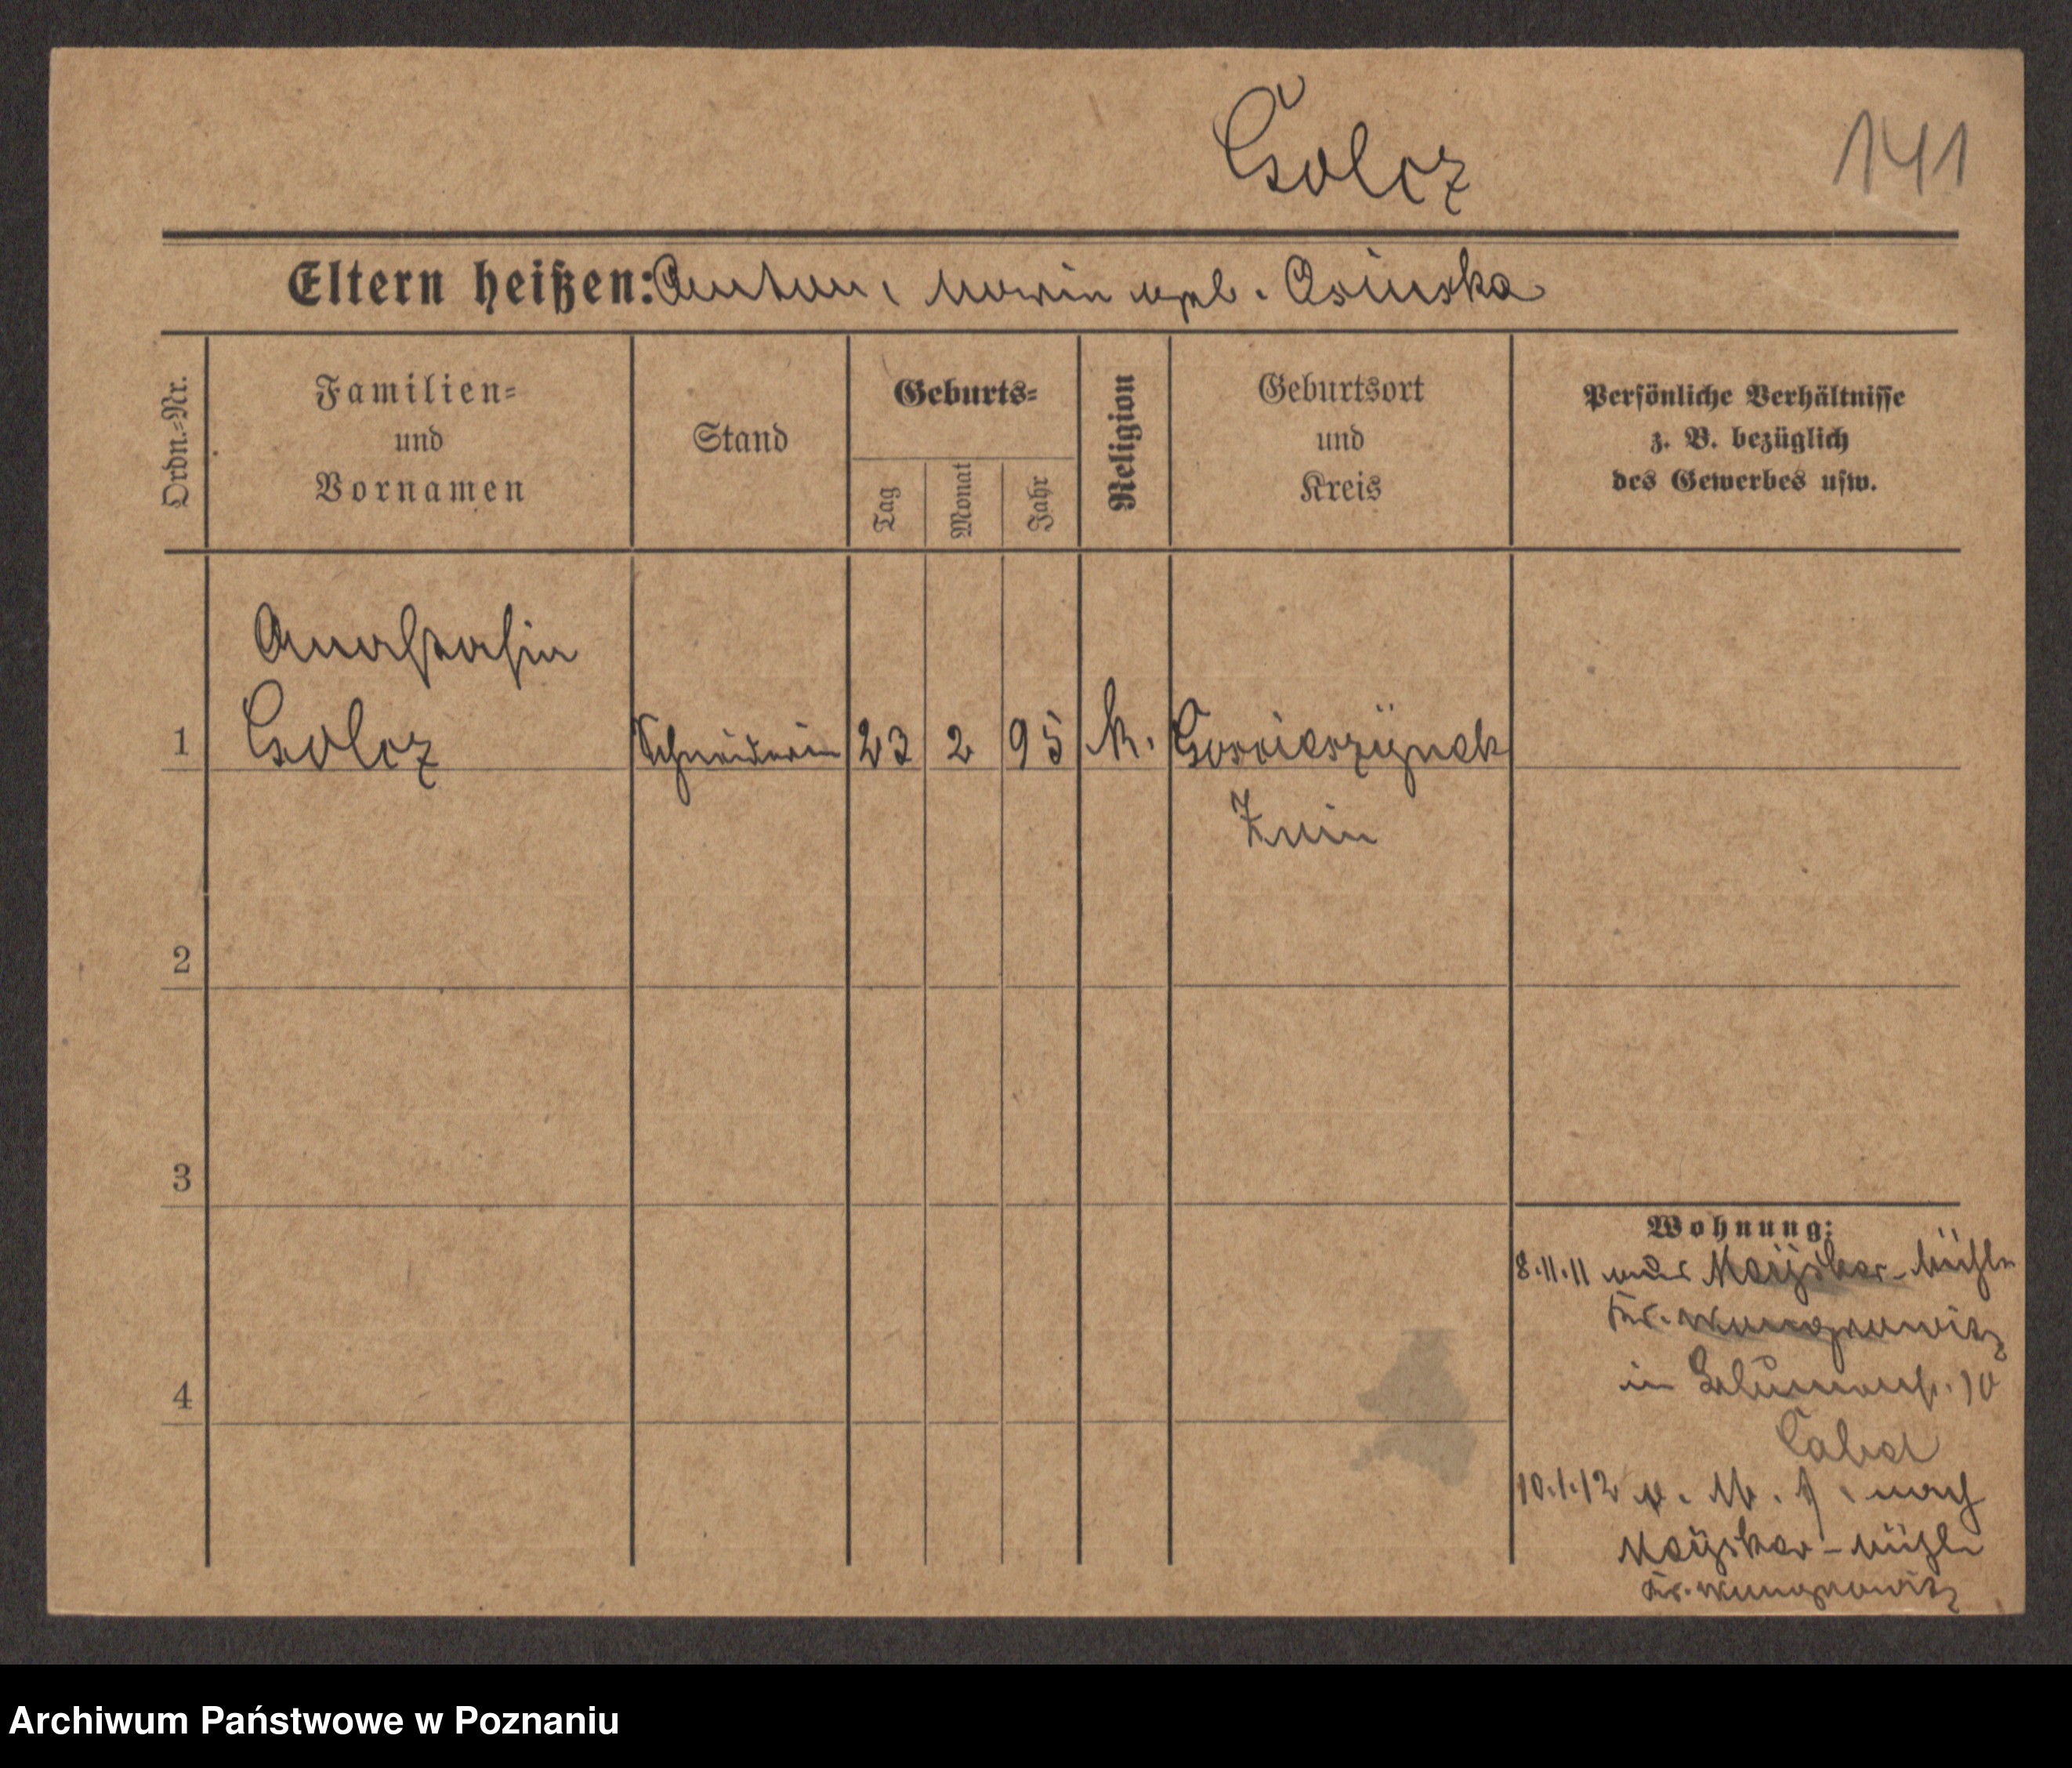 Golcz
141
Eltern heißen: Anton, Maria geb. Osinska
Ordn.-Nr.
Familien-
und
Vornamen
Stand
Geburts-
Tag
Monat
Jahr
Religion
Geburtsort
und
Kreis
Persönliche Verhältnisse
z. B. bezüglich
des Gewerbes usw.
Anastasia
1 Golcz Schneiderin 23 2 95 k. Goscieszynek
Znin
2
3
4
Wohnung:
8.11.11 aus -Mühle
Kr. Wongrowitz
in Blumenstr. 10
10.1.12 nach
-Mühle
Kr. Wongrowitz
Archiwum Państwowe w Poznaniu